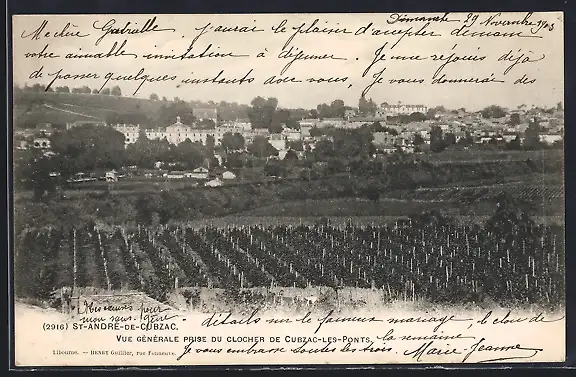 Dimanche 29 Novembre 1903
Ma chère Gabrielle, j'aurai le plaisir d'accepter demain
votre aimable invitation à déjeuner. Je me réjouis déjà
de passer quelques instants avec vous, je vous donnerai des
Mes amitiés pour
mon
détails sur le fameux mariage, le clou de
la semaine
(2916) ST-ANDRÉ-DE-CUBZAC.
VUE GÉNÉRALE PRISE DU CLOCHER DE CUBZAC-LES-PONTS.
Libourne. — HENRY Guillier, rue Fonneuve.
Je vous embrasse toutes les trois.
Marie-Jeanne